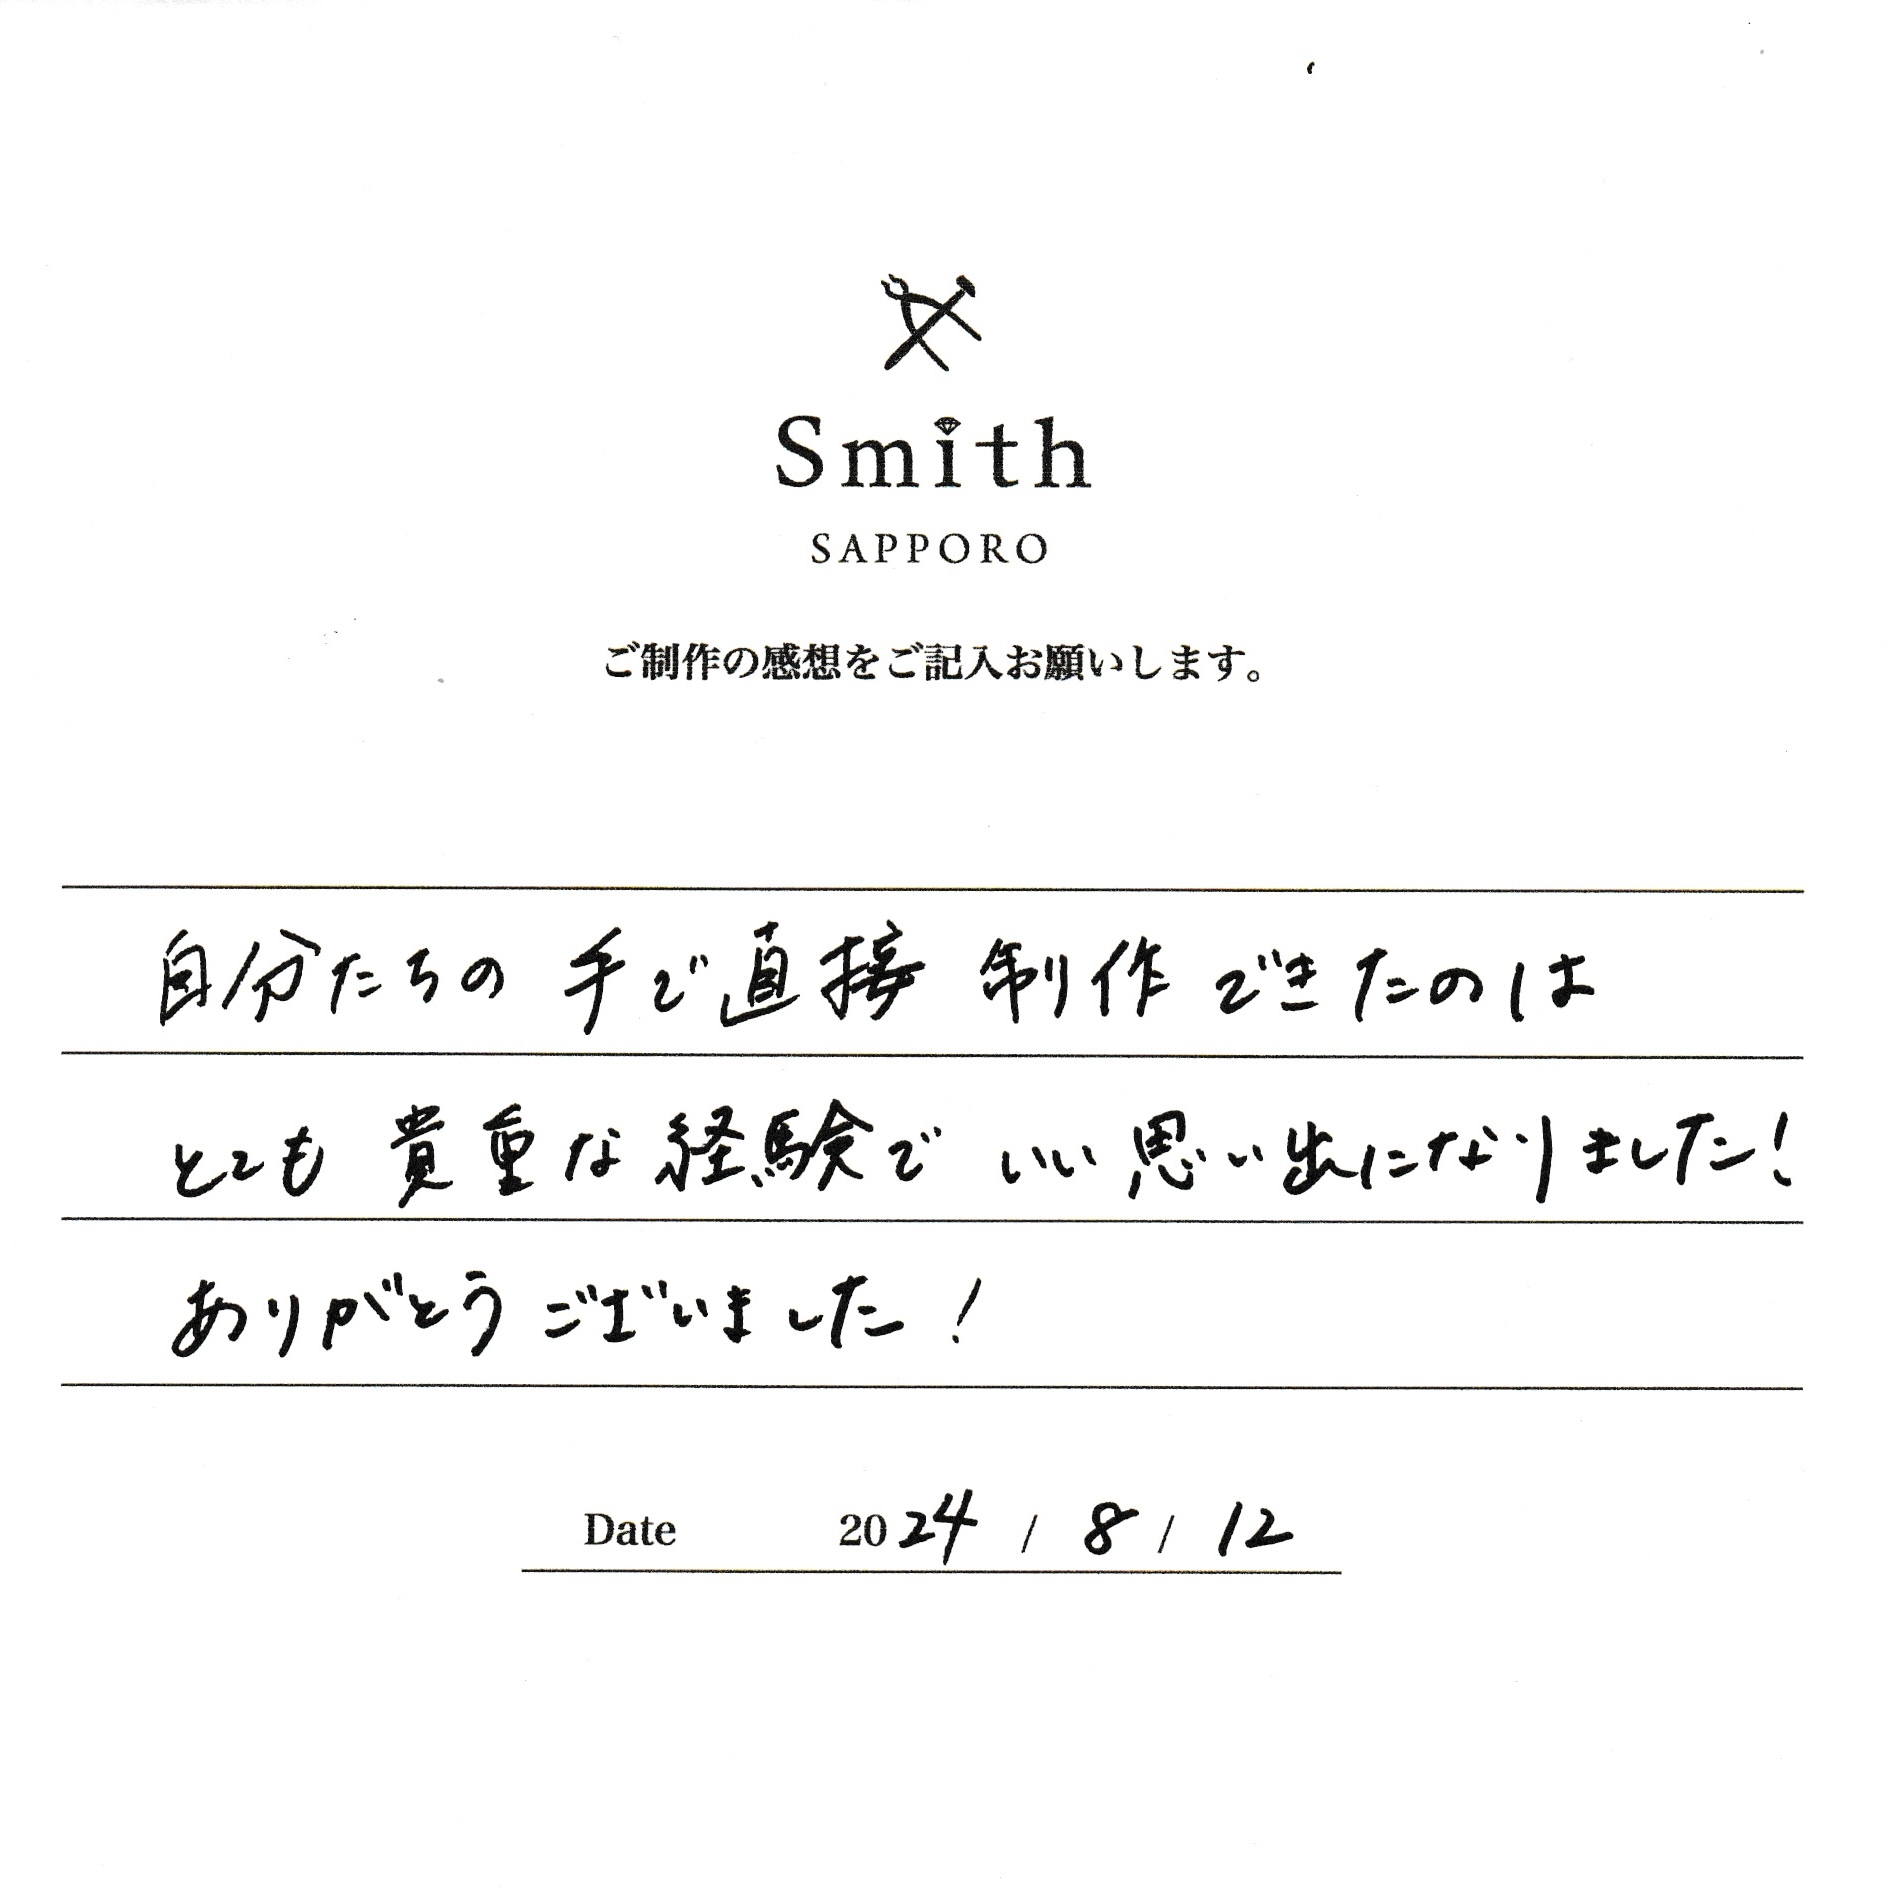 Smith
SAPPORO
ご制作の感想をご記入お願いします。
自分たちの手で直接制作できたのは
とても貴重な経験でいい思い出になりました!
ありがとうございました!
Date 2024 / 8 / 12